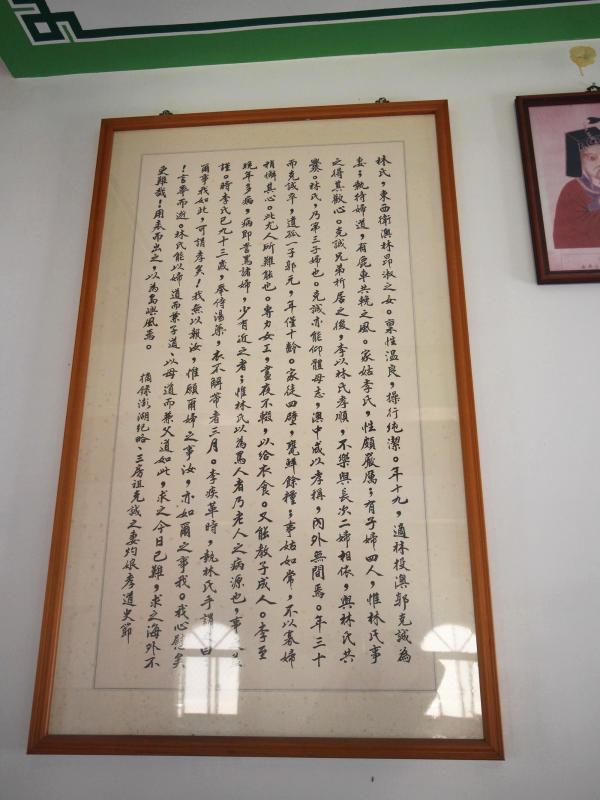 林氏，東西衛澳林昂淑之女。稟性溫良，操行純潔。年十九，適林投澳郭克誠為
妻；執侍婦道，有鹿車共挽之風。家姑李氏，性頗嚴厲；有子婦四人，惟林氏事
之得其歡心。克誠兄弟析居之後，李以林氏孝順，不樂與長次二婦相依，與林氏共
爨。林氏，乃第三子婦也。克誠亦能仰體母志，澳中咸以孝稱，內外無間焉。年三十
而克誠卒，遺孤一子郭元，年僅十齡。家徒四壁，甕鮮餘種；事姑如常，不以寡婦
稍懈其心。此尤人所難能也。專力女工，晝夜不輟，以給衣食。又能教子成人。李至
晚年多病，病即詈罵諸婦，少有近之者；惟林氏以為罵人者乃老人之病源也，事
謹。時李氏已九十三歲，奉侍湯藥，衣不解帶者三月。李疾革時，執林氏手謂曰
爾事我如此，可謂孝矣！我無以報汝，惟願爾婦之事汝，亦如爾之事我。我心慰矣
！言畢而逝。林氏能以婦道而兼子道、以母道而兼父道如此，求之今日已難，求之海外不
更難哉！用表而出之，以為島嶼風焉。
摘錄澎湖紀略·三房祖克誠之妻灼娘孝道史節